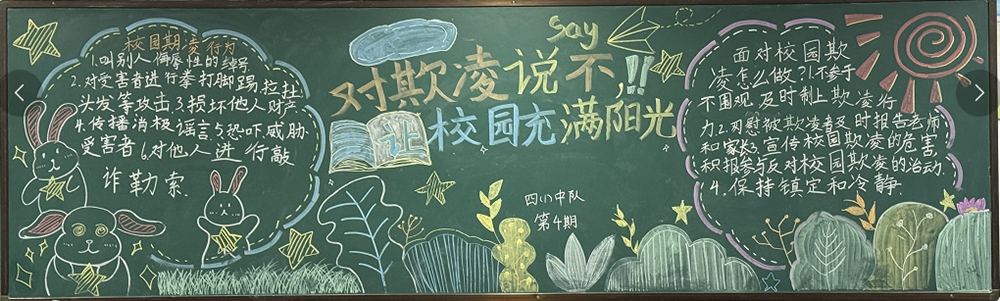 校园期凌行为
1.叫别人侮辱性的绰号
2.对受害者进行拳打脚踢拉扯
头发等攻击3.损坏他人财产
4.传播消极谣言5恐吓威胁
受害者6.对他人进行敲
诈勒索
say
对欺凌说不,!!
让校园充满阳光
四(1)中队
第4期
面对校园欺
凌怎么做?1.不参于
不围观及时制止欺凌行
2.慰被欺凌者及时报告老师
和家长3.宣传校园欺凌的危害
积报参与反对校园欺凌的活动
4.保持镇定和冷静